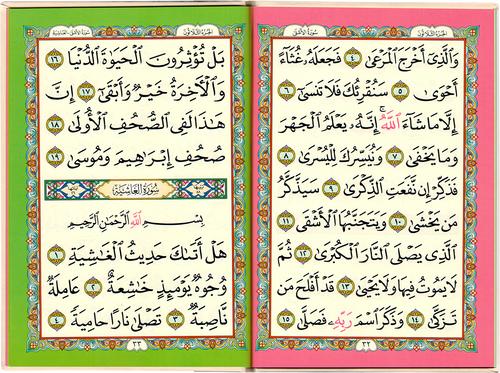 الجزء الثلاثون
وَالَّذِي أَخْرَجَ الْمَرْعَىٰ ٤ فَجَعَلَهُ غُثَاءً
أَحْوَىٰ ٥ سَنُقْرِئُكَ فَلَا تَنسَىٰ ٦
إِلَّا مَا شَاءَ اللَّهُ ۚ إِنَّهُ يَعْلَمُ الْجَهْرَ
وَمَا يَخْفَىٰ ٧ وَنُيَسِّرُكَ لِلْيُسْرَىٰ ٨
فَذَكِّرْ إِن نَّفَعَتِ الذِّكْرَىٰ ٩ سَيَذَّكَّرُ
مَن يَخْشَىٰ ١٠ وَيَتَجَنَّبُهَا الْأَشْقَى ١١
الَّذِي يَصْلَى النَّارَ الْكُبْرَىٰ ١٢ ثُمَّ
لَا يَمُوتُ فِيهَا وَلَا يَحْيَىٰ ١٣ قَدْ أَفْلَحَ مَن
تَزَكَّىٰ ١٤ وَذَكَرَ اسْمَ رَبِّهِ فَصَلَّىٰ ١٥
٣٢
الجزء الثلاثون
بَلْ تُؤْثِرُونَ الْحَيَوٰةَ الدُّنْيَا ١٦
وَالْآخِرَةُ خَيْرٌ وَأَبْقَىٰ ١٧ إِنَّ
هَٰذَا لَفِي الصُّحُفِ الْأُولَىٰ ١٨
صُحُفِ إِبْرَاهِيمَ وَمُوسَىٰ ١٩
سُورَةُ الْغَاشِيَةِ
بِسْمِ اللَّهِ الرَّحْمَٰنِ الرَّحِيمِ
هَلْ أَتَىٰكَ حَدِيثُ الْغَاشِيَةِ ١
وُجُوهٌ يَوْمَئِذٍ خَاشِعَةٌ ٢ عَامِلَةٌ
نَّاصِبَةٌ ٣ تَصْلَىٰ نَارًا حَامِيَةً ٤
٣٣